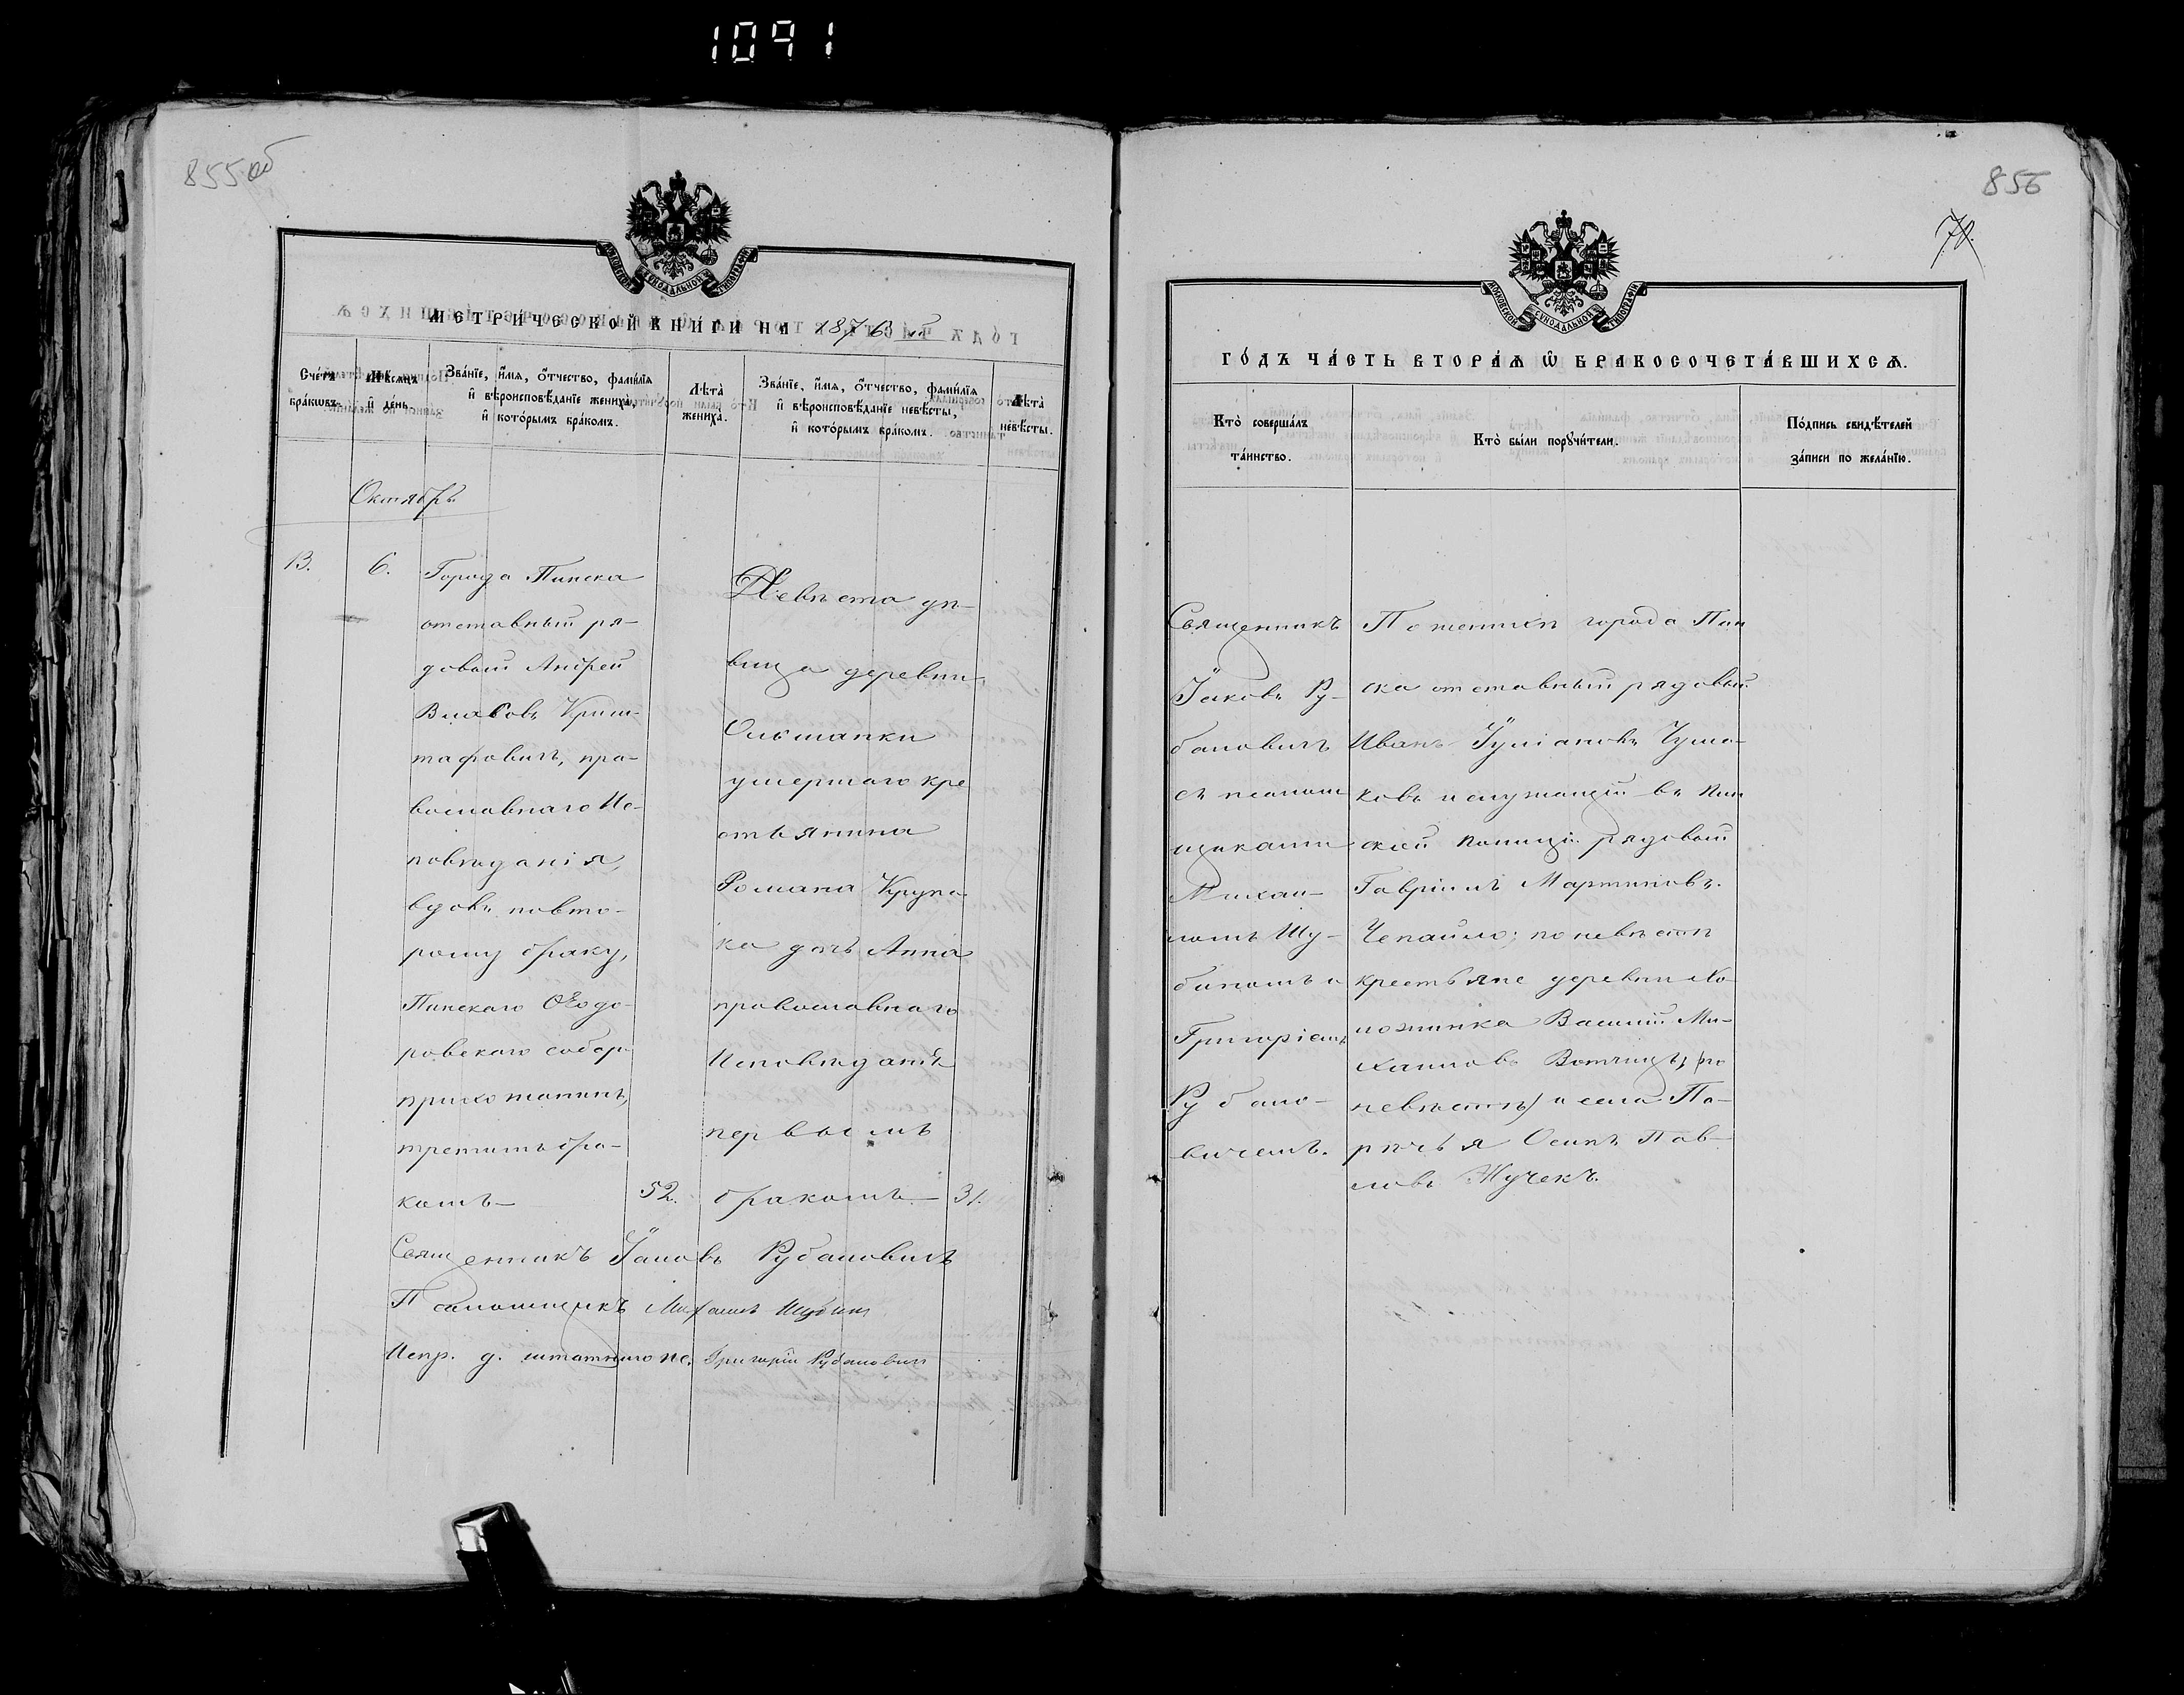 1091
855 об
МОСКОВСКОЙ СѴНОДАЛЬНОЙ ТИПОГРАФІИ
МЕТРИ́ЧЕСКОЙ КНИ́ГИ НА 1876 ый
Сче́тъ бра́кωвъ.
Мѣ́сяцъ и҆ де́нь.
Зва́нїе, и҆́мя, ѻ҆́тчество, фами́лїя и҆ вѣроисповѣ́данїе жениха̀, и҆ кото́рымъ бра́комъ.
Лѣта̀ жениха̀.
Зва́нїе, и҆́мя, ѻ҆́тчество, фами́лїя и҆ вѣроисповѣ́данїе невѣ́сты, и҆ кото́рымъ бра́комъ.
Лѣта̀ невѣ́сты.
Октябрь
13.
6.
Города Пинска
отставный ря-
довый Андрей
Власовъ Криш-
тафовичъ, пра-
вославнаго Ис-
повѣданія,
вдовъ по вто-
рому браку,
Пинскаго Ѳеодо-
ровскаго собор.
прихожанинъ,
третимъ бра-
комъ—
52.
Невѣста дѣ-
вица деревни
Ольшанки
умершаго кре
стьянина
Романа Крупо
ка дочь Анна
православнаго
Исповѣданія
первымъ
бракомъ—
31.
Священникъ Іаковъ Рубановичъ
Псаломщикъ Михаилъ Шубинъ
Испр. д. штатнаго пс. Григорій Рубановичъ
856
70.
МОСКОВСКОЙ СѴНОДАЛЬНОЙ ТИПОГРАФІИ
ГО́ДЪ ЧА́СТЬ ВТОРА́Я Ѽ БРАКОСОЧЕТА́ВШИХСЯ.
Кто̀ соверша́лъ та́инство.
Кто̀ бы́ли порꙋчи́тели.
По́дпись свидѣ́телей за́писи по жела́нїю.
Священникъ
Іаковъ Ру-
бановичъ
съ псаломъ
щиками
Михаи-
ломъ Шу-
бинымъ и
Григоріемъ
Рубано-
вичемъ.
По женихѣ города Пин
ска отставный рядовый
Иванъ Іуліановъ Чума-
ковъ и служащій въ Пин
ской полиціи рядовый
Гавріилъ Мартиновъ.
Чепайло; по невѣстѣ
крестьяне деревни Хо
ложинка Василій Ми-
хаиловъ Вотчицъ, (по
невѣстѣ) и села По-
рѣчья Осипъ Пав-
ловъ Жучекъ.